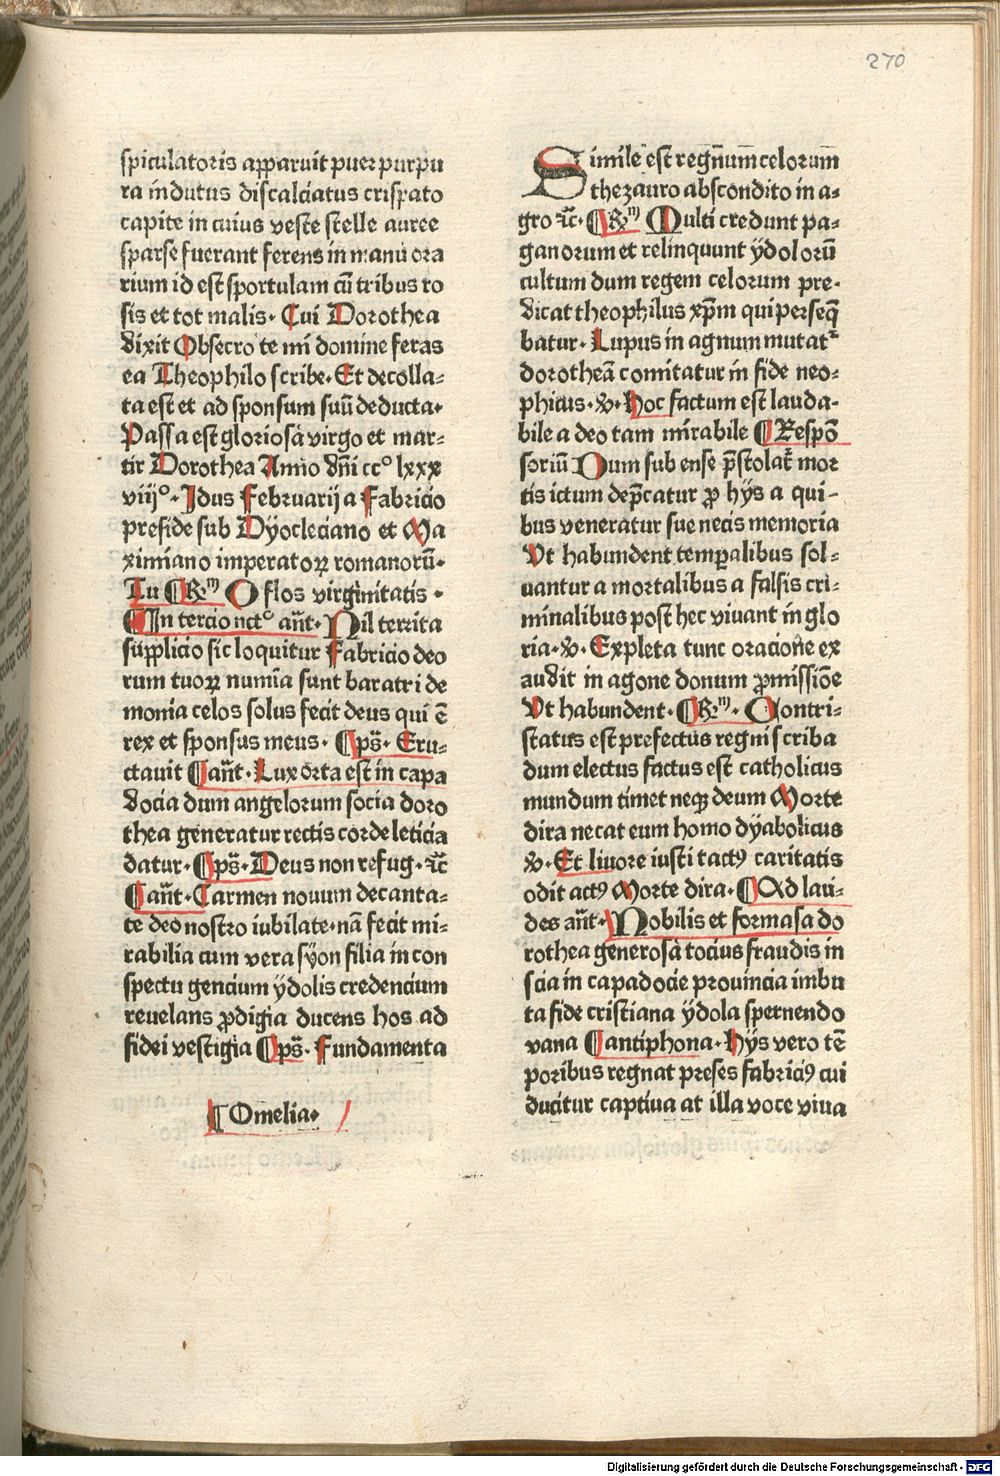 270
spiculatoris apparuit puer purpu
ra indutus discalciatus crispato
capite in cuius veste stelle auree
sparse fuerant ferens in manu ora
rium id est sportulam cū tribus ro
sis et tot malis. Cui Dorothea
dixit Obsecro te mi domine feras
ea Theophilo scribe. Et decolla-
ta est et ad sponsum suū deducta.
Passa est gloriosa virgo et mar-
tir Dorothea Anno dn̄i cc° lxxx
viij°. Idus Februarij a Fabricio
preside sub Dÿocleciano et Ma
ximiano imperatoꝝ romanorū.
Tu ¶ Rm O flos virginitatis.
¶ In tercio nct° an̄t. Nil territa
supplicio sic loquitur Fabricio deo
rum tuoꝝ numīa sunt baratri de
monia celos solus fecit deus qui ē
rex et sponsus meus. ¶ ps̄. Eru-
ctauit ¶ an̄t. Lux orta est in capa
docia dum angelorum socia doro
thea generatur rectis corde leticia
datur. ¶ ps̄. Deus non refug. ⁊c̄
¶ an̄t. Carmen nouum decanta-
te deo nostro iubilate. nā fecit mi-
rabilia cum vera sÿon filia in con
spectu gencium ÿdolis credencium
reuelans ꝓdigia ducens hos ad
fidei vestigia ¶ ps̄. Fundamenta
¶ Omelia.
Simile est regn̄um celorum
thezauro abscondito in a-
gro ⁊c̄. ¶ Rm Multi credunt pa-
ganorum et relinquunt ÿdolorū
cultum dum regem celorum pre-
dicat theophilus xp̄m qui perseq̄
batur. Lupus in agnum mutat᷑
dorotheā comitatur in fide neo-
phicus. ꝟ. Hoc factum est lauda-
bile a deo tam mirabile ¶ Respō
soriū Dum sub ense p̄stolat᷑ mor
tis ictum dep̄catur ꝓ hÿs a qui-
bus veneratur sue necis memoria
Vt habundent temꝑalibus sol-
uantur a mortalibus a falsis cri-
minalibus post hec viuant in glo
ria. ꝟ. Expleta tunc oracione ex
audit in agone donum ꝓmissiōe
Vt habundent. ¶ Rm. Contri-
status est prefectus regni scriba
dum electus factus est catholicus
mundum timet neqꝫ deum Morte
dira necat eum homo dÿabolicus
ꝟ. Et liuore iusti tactꝰ caritatis
odit actꝰ Morte dira. ¶ Ad lau-
des an̄t. Nobilis et formosa do
rothea generosa tocius fraudis in
scia in capadocie prouincia imbu
ta fide cristiana ÿdola spernendo
vana ¶ antiphona. Hÿs vero tē
poribus regnat preses fabriciꝰ cui
ducitur captiua at illa voce viua
Digitalisierung gefördert durch die Deutsche Forschungsgemeinschaft - DFG